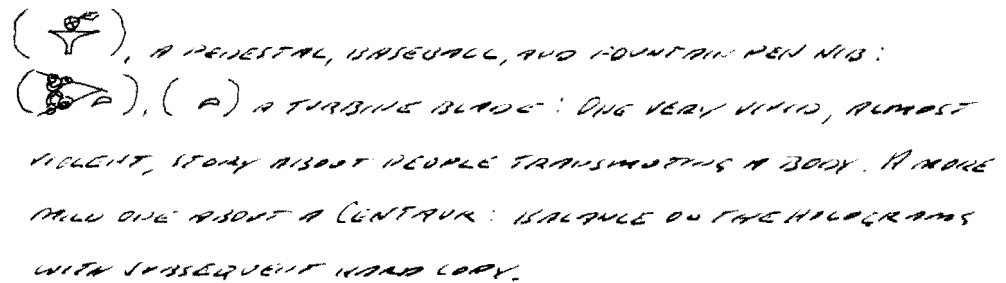 ( ), A PEDESTAL, BASEBALL, AND FOUNTAIN PEN NIB:
( ), ( ) A TURBINE BLADE: ONE VERY VIVID, ALMOST
VIOLENT, STORY ABOUT PEOPLE TRANSMUTING A BODY. A MORE
MILD ONE ABOUT A CENTAUR: BALANCE ON THE HOLOGRAMS
WITH SUBSEQUENT HARD COPY.